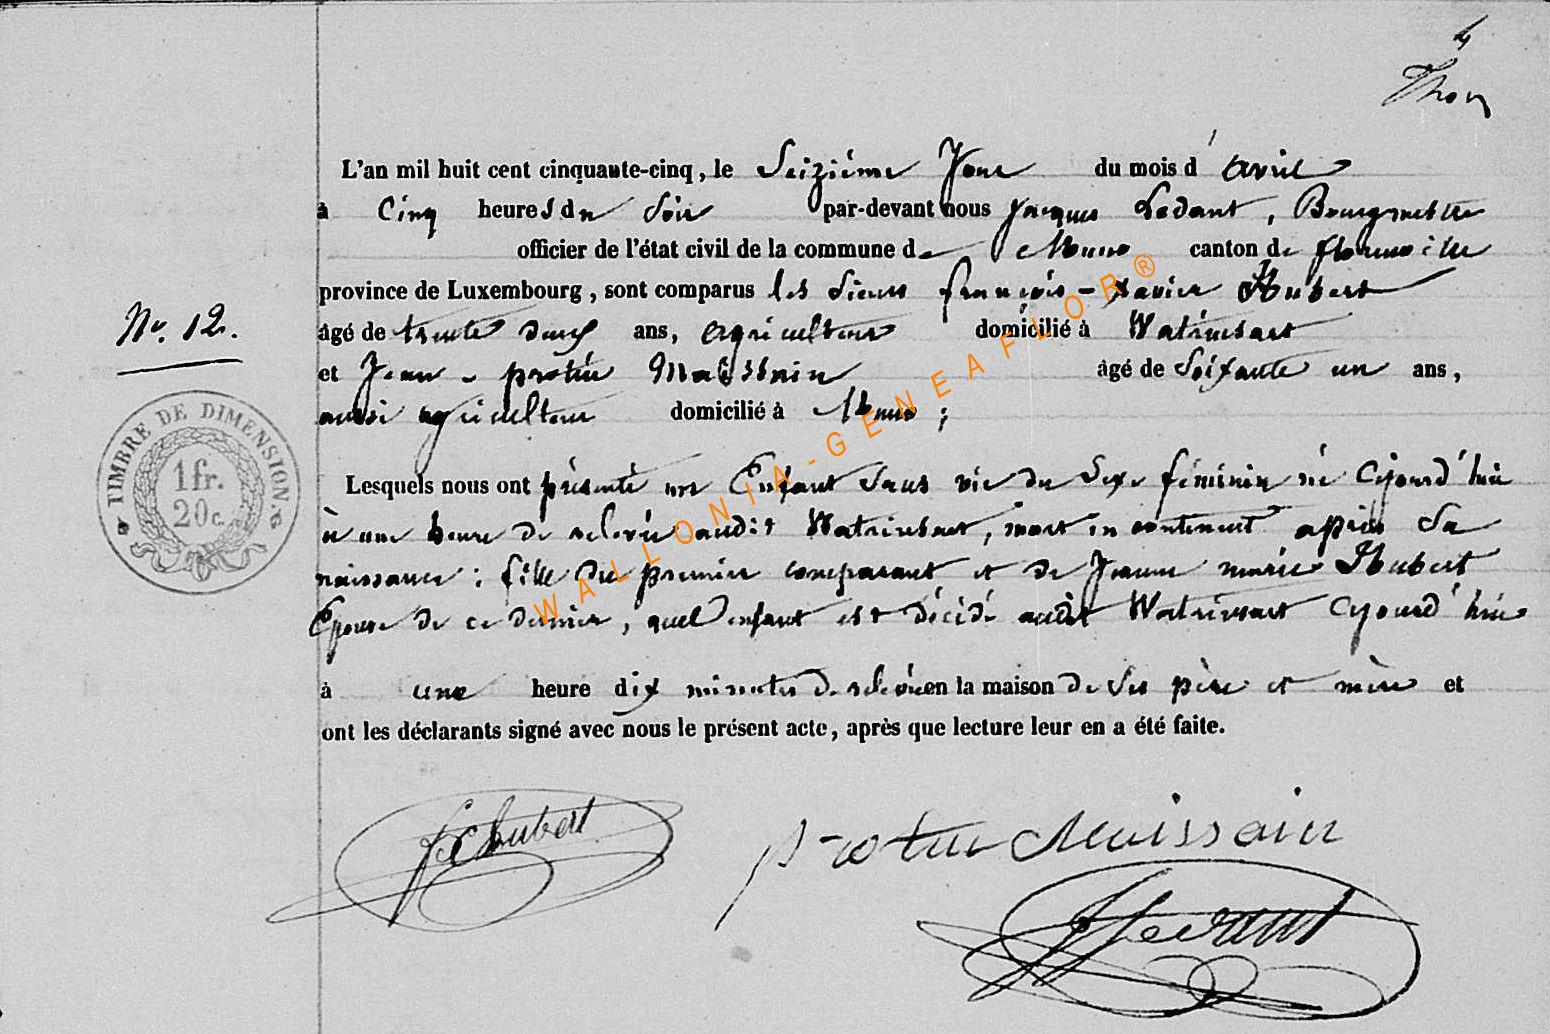 4
Thon
L'an mil huit cent cinquante-cinq, le Seizième Jour du mois d'avril
à Cinq heures du Soir par-devant nous Jacques Ledant, Bourgmestre
officier de l'état civil de la commune de Muno canton de florenville
province de Luxembourg, sont comparus les Sieurs françois-Xavier Hubert
âgé de trente deux ans, agriculteur domicilié à Watrinsart
et Jean-protin Maissain âgé de Soixante un ans,
aussi agriculteur domicilié à Muno;
No. 12.
TIMBRE DE DIMENSION. G
1 fr.
20 c.
Lesquels nous ont présenté un Enfant Sans vie du Sexe féminin né Cejourd'hui
à une heure de relevée audit Watrinsart, mort incontinent après Sa
naissance: fille du premier comparant et de Jeanne marie Hubert
Epouse de ce dernier, quel enfant est décédé audit Watrinsart Cejourd'hui
à une heure dix minutes de relevée en la maison de Ses père et mère et
ont les déclarants signé avec nous le présent acte, après que lecture leur en a été faite.
fx hubert
protin Maissain
J Ledant
WALLONIA-GENEAFLOR®